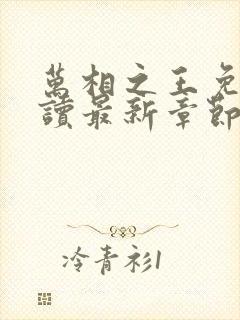 萬相之王免
讀最新章節
冷青衫1